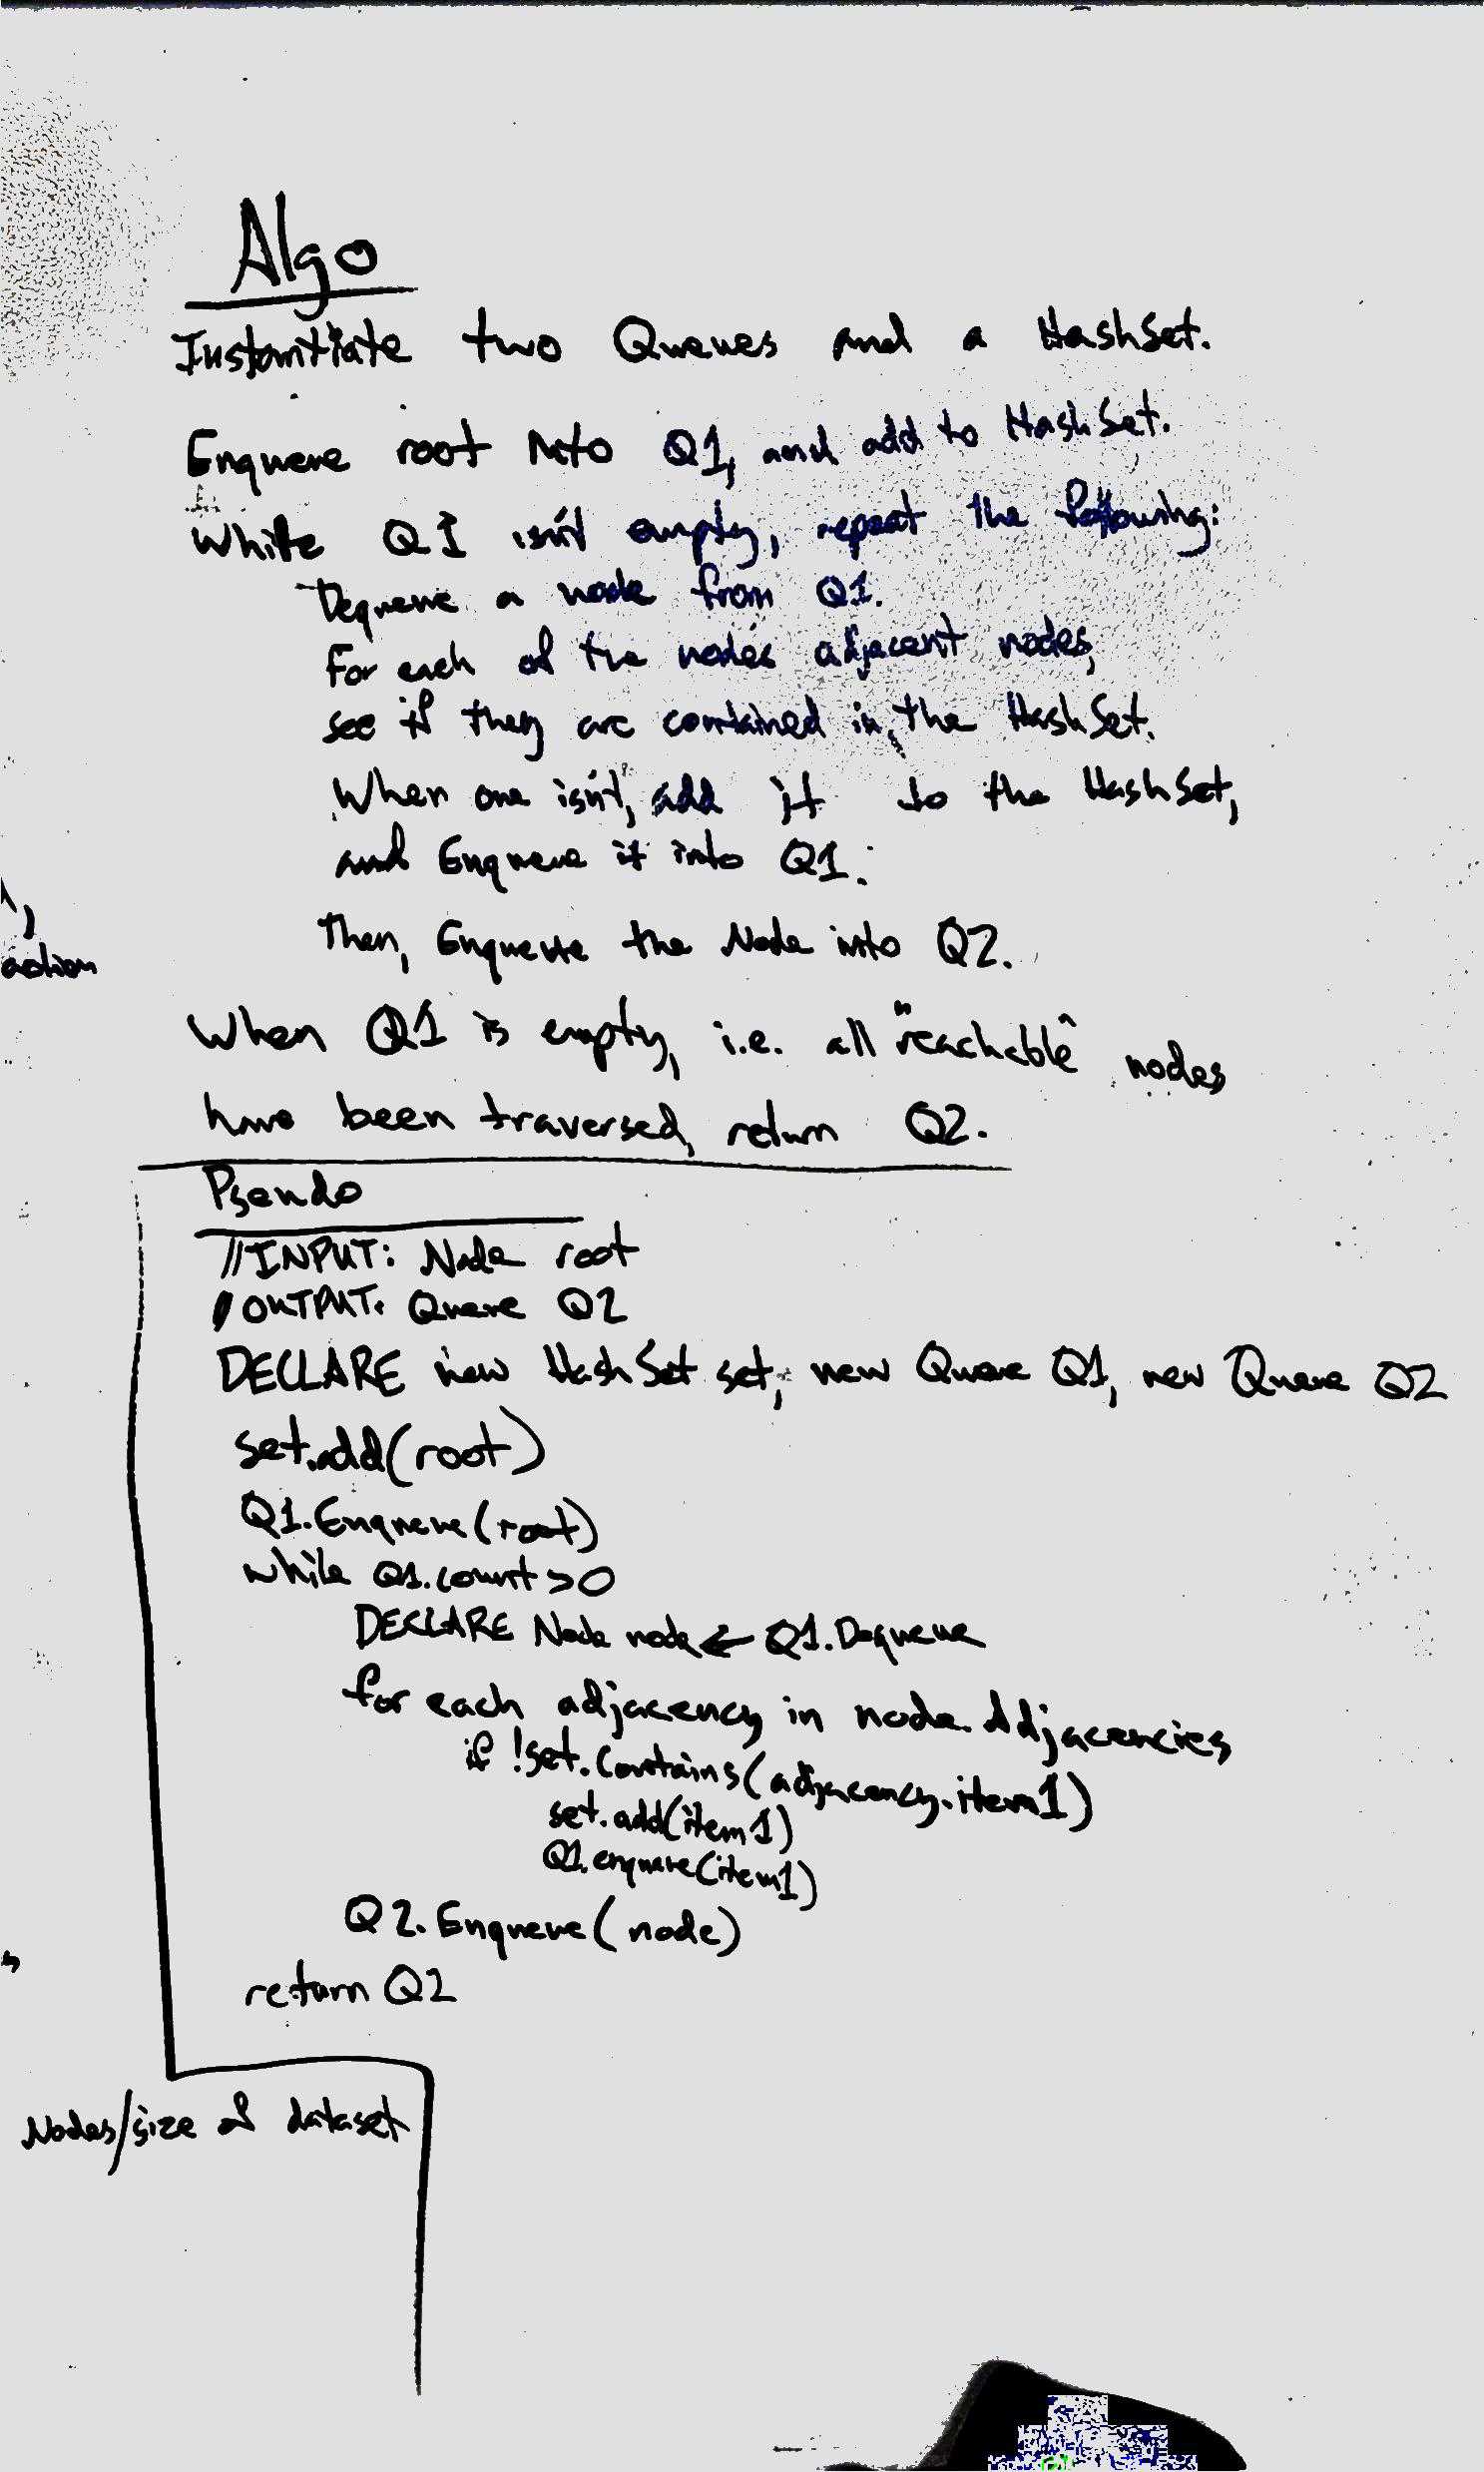 Algo
Instantiate two Queues and a HashSet.
Enqueue root into Q1, and add to HashSet.
While Q1 isn't empty, repeat the following:
Dequeue a node from Q1.
For each of the nodes adjacent nodes,
see if they are contained in the HashSet.
When one isn't, add it to the HashSet,
and Enqueue it into Q1.
Then, Enqueue the Node into Q2.
action
When Q1 is empty, i.e. all "reachable" nodes
have been traversed, return Q2.
Pseudo
//INPUT: Node root
//OUTPUT: Queue Q2
DECLARE new HashSet set, new Queue Q1, new Queue Q2
set.add(root)
Q1.Enqueue(root)
while Q1.count>0
DECLARE Node node ← Q1.Dequeue
for each adjacency in node.Adjacencies
if !set.Contains(adjacency.item1)
set.add(item1)
Q1.enqueue(item1)
Q2.Enqueue(node)
return Q2
Nodes/size of dataset